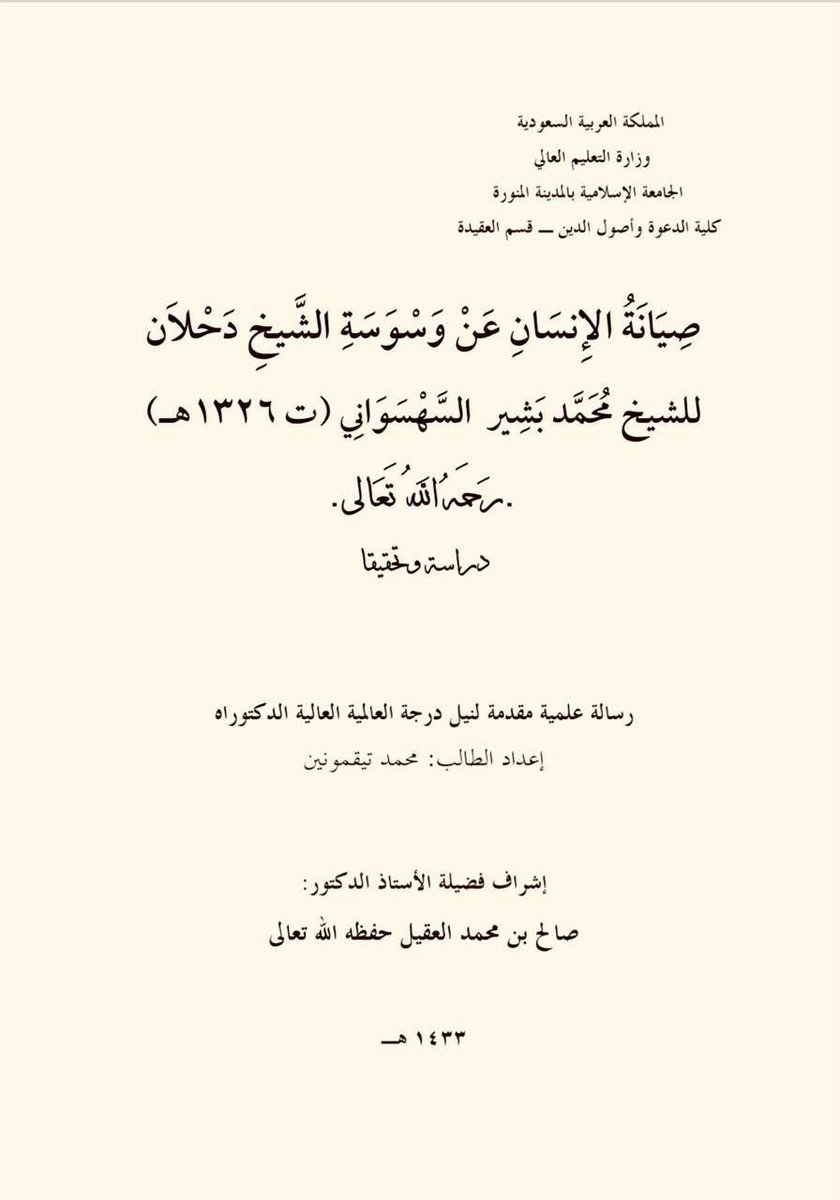 المملكة العربية السعودية
وزارة التعليم العالي
الجامعة الإسلامية بالمدينة المنورة
كلية الدعوة وأصول الدين ــ قسم العقيدة
صِيَانَةُ الإِنسَانِ عَنْ وَسْوَسَةِ الشَّيخِ دَحْلاَن
للشيخ مُحَمَّد بَشِير السَّهْسَوَانِي (ت ١٣٢٦هـ)
.رَحَمَهُ اللهُ تَعَالى.
دراسة وتحقيقا
رسالة علمية مقدمة لنيل درجة العالمية العالية الدكتوراه
إعداد الطالب: محمد تيقمونين
إشراف فضيلة الأستاذ الدكتور:
صالح بن محمد العقيل حفظه الله تعالى
١٤٣٣ هــ